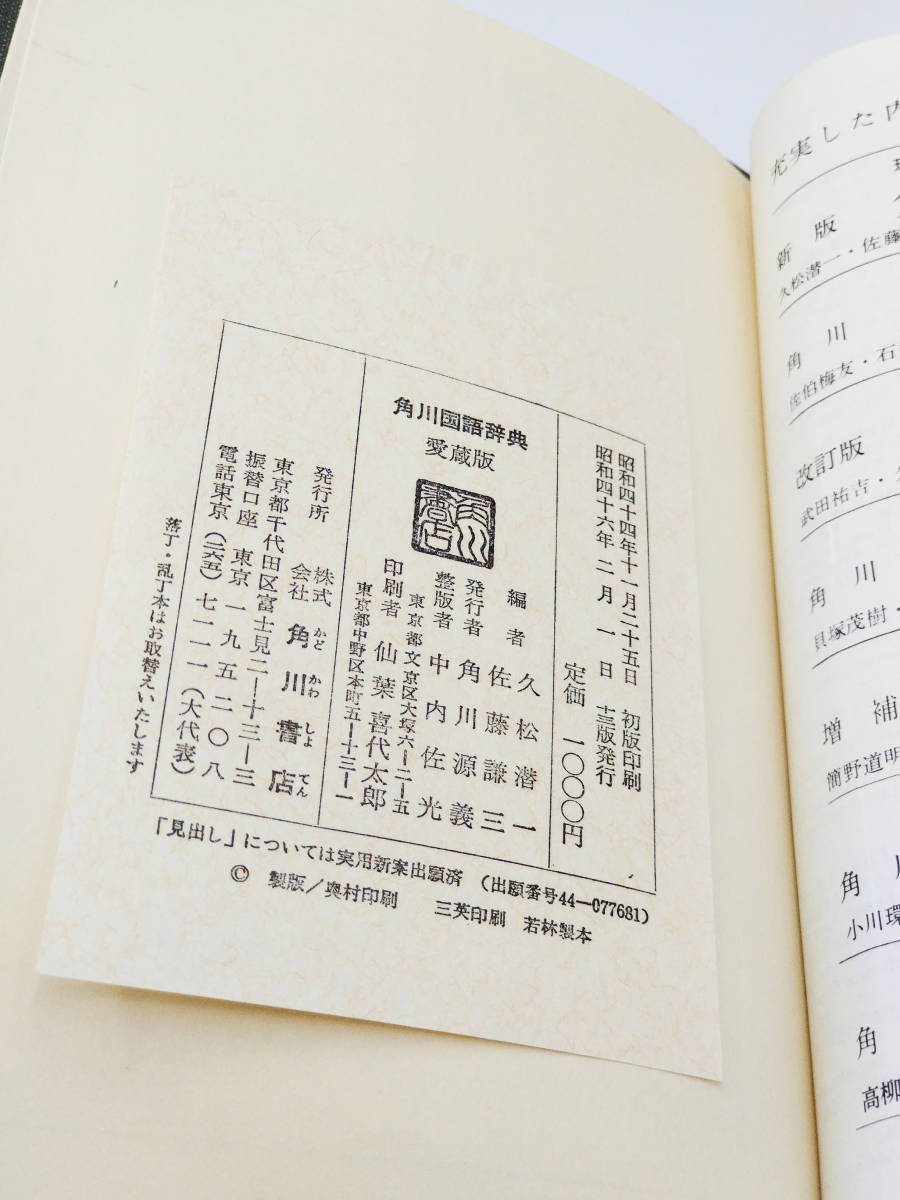 昭和四十四年十一月二十五日　初版印刷
昭和四十六年　二月　一日　十三版発行
定価　一〇〇〇円
角川国語辞典
愛蔵版
角川書店
編者　久松潜一
佐藤謙三
発行者　角川源義
整版者　中内佐光
東京都文京区大塚六―二―五
印刷者　仙葉喜代太郎
東京都中野区本町五―十三―一
発行所　株式会社　角川書店
かどかわしょてん
東京都千代田区富士見二―十三―三
振替口座　東京一九五二〇八
電話東京（二六五）七一一一（大代表）
落丁・乱丁本はお取替えいたします
「見出し」については実用新案出願済　（出願番号44―077681）
©　製版／奥村印刷　三英印刷　若林製本
充実した内
新版
久松潜一・佐藤
角川
佐伯梅友・石
改訂版
武田祐吉・久
角川
貝塚茂樹・
増補
簡野道明
角川
小川環
角
高柳